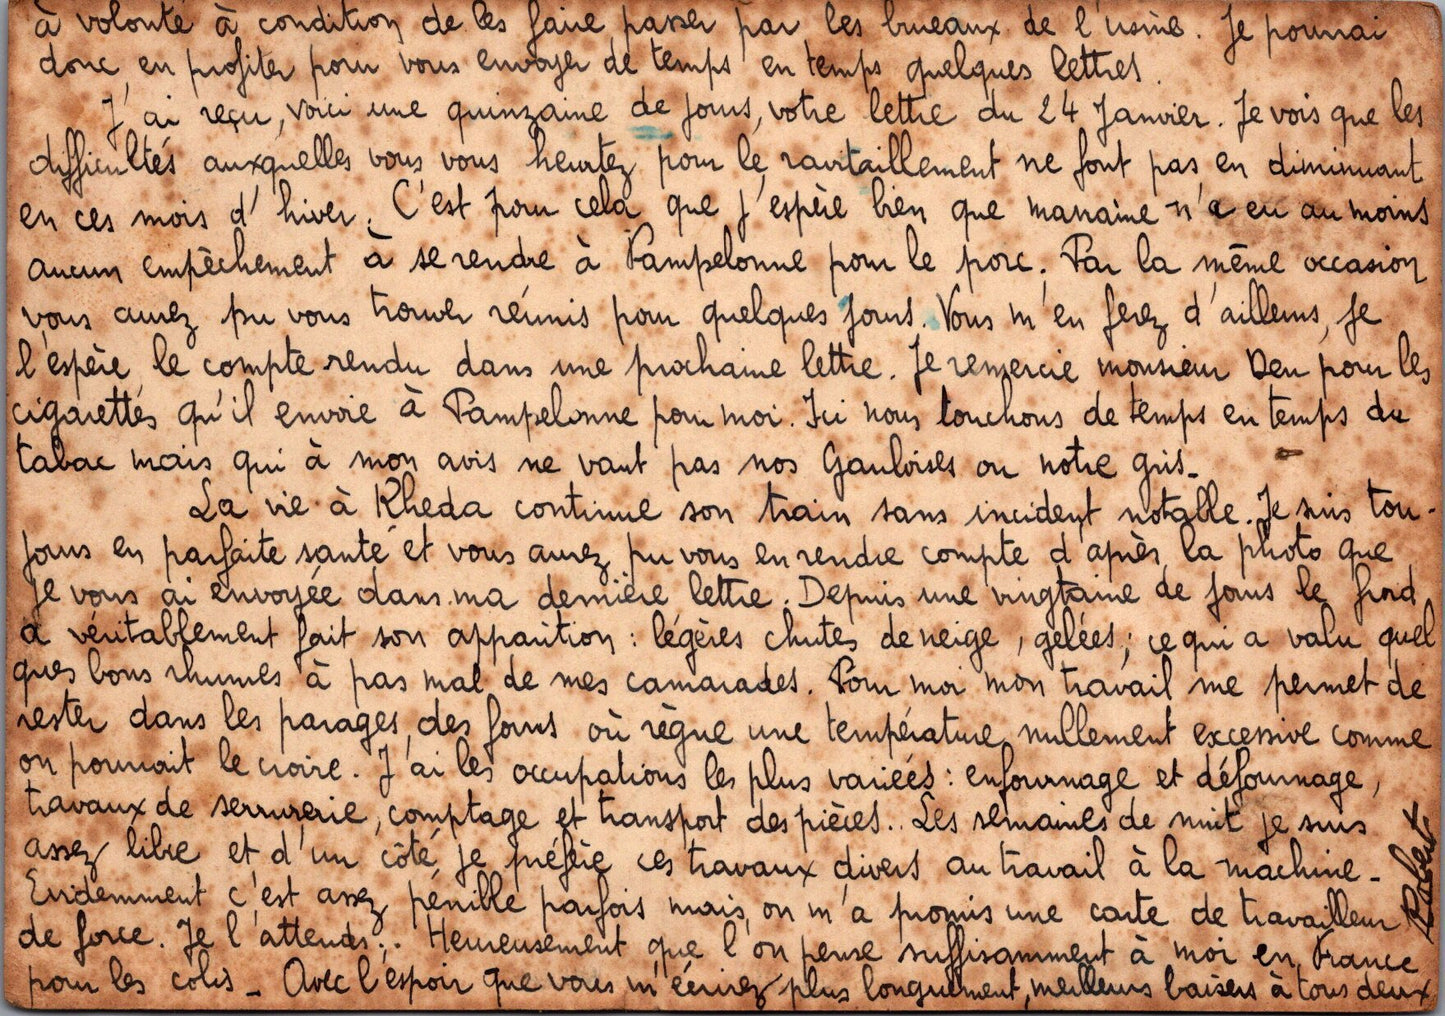 à volonté à condition de les faire passer par les bureaux de l'usine. Je pourrai
donc en profiter pour vous envoyer de temps en temps quelques lettres.
J'ai reçu, voici une quinzaine de jours, votre lettre du 24 Janvier. Je vois que les
difficultés auxquelles vous vous heurtez pour le ravitaillement ne font pas en diminuant
en ces mois d'hiver. C'est pour cela que j'espère bien que marraine n'a eu au moins
aucun empêchement à se rendre à Pampelonne pour le porc. Par la même occasion
vous aurez pu vous trouver réunis pour quelques jours. Vous m'en ferez d'ailleurs, je
l'espère, le compte rendu dans une prochaine lettre. Je remercie monsieur pour les
cigarettes qu'il envoie à Pampelonne pour moi. Ici nous touchons de temps en temps du
tabac mais qui à mon avis ne vaut pas nos Gauloises ou notre gris_
La vie à Rheda continue son train sans incident notable. Je suis tou-
jours en parfaite santé et vous aurez pu vous en rendre compte d'après la photo que
je vous ai envoyée dans ma dernière lettre. Depuis une vingtaine de jours le froid
a véritablement fait son apparition : légères chutes de neige, gelées; ce qui a valu quel
ques bons rhumes à pas mal de mes camarades. Pour moi mon travail me permet de
rester dans les parages des fours où règne une température nullement excessive comme
on pourrait le croire. J'ai les occupations les plus variées : enfournage et défournage,
travaux de serrurerie, comptage et transport des pièces.. Les semaines de nuit je suis
assez libre et d'un côté je préfère ces travaux divers au travail à la machine_
Evidemment c'est assez pénible parfois mais on m'a promis une carte de travailleur
de force. Je l'attends... Heureusement que l'on pense suffisamment à moi en France
pour les colis_ Avec l'espoir que vous m'écrirez plus longuement, meilleurs baisers à tous deux
Robert